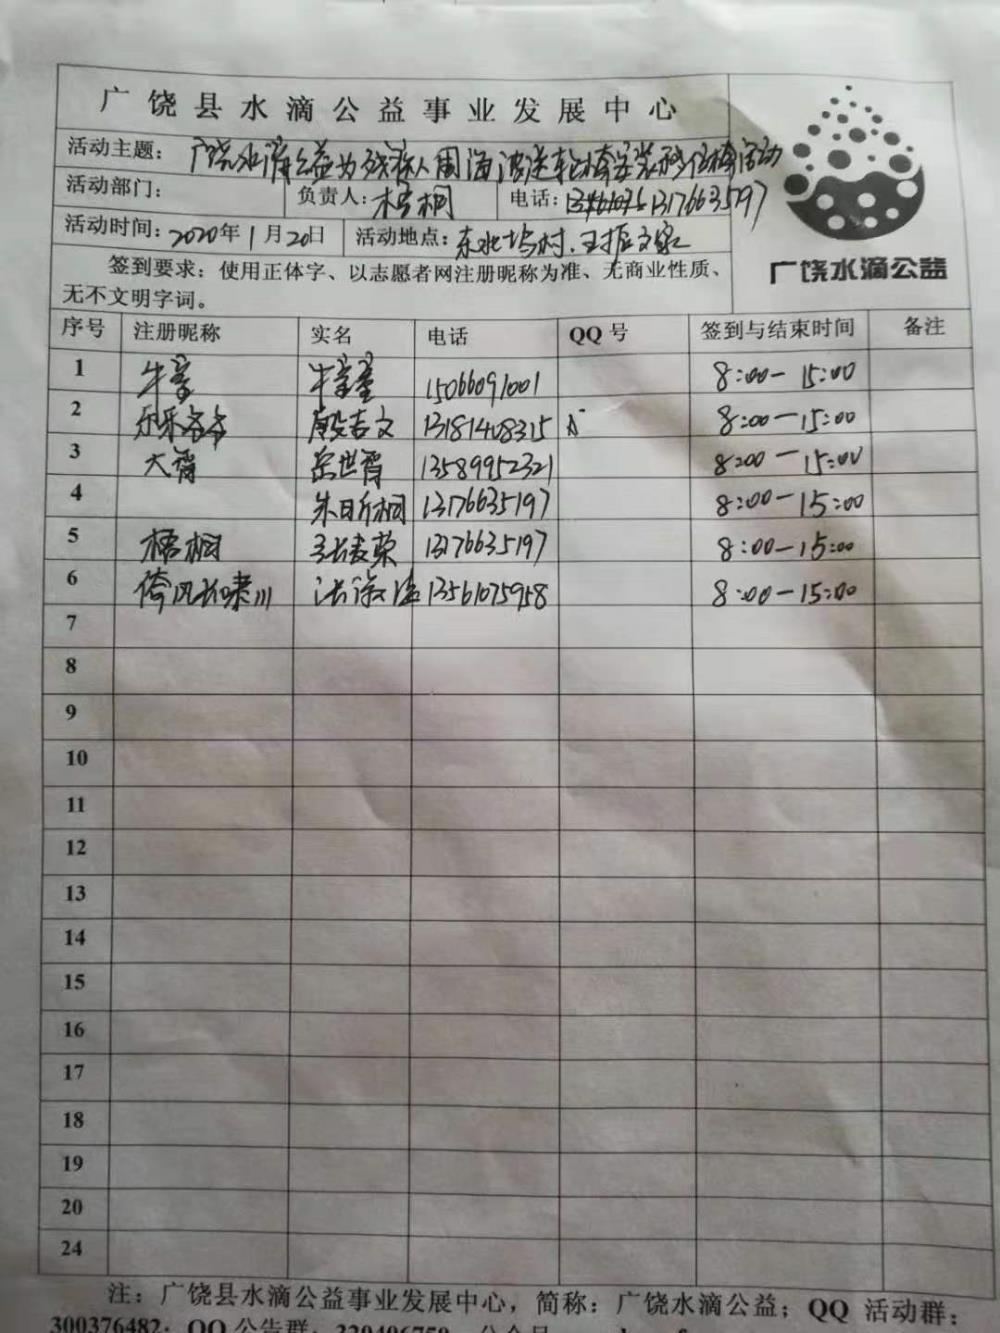 广饶县水滴公益事业发展中心
活动主题：广饶水滴公益为残疾人周海波送轮椅
活动部门： 负责人：梧桐 电话：13176635197
活动时间：2020年1月20日 活动地点：东北坞村、王振文家
签到要求：使用正体字、以志愿者网注册昵称为准、无商业性质、
无不文明字词。
广饶水滴公益
序号 注册昵称 实名 电话 QQ 号 签到与结束时间 备注
1 牛童 牛童童 15066091001 8:00-15:00
2 乐乐爷爷 殷吉文 13181408315 8:00-15:00
3 大胥 荣世胥 13589952321 8:00-15:00
4 13176635197 8:00-15:00
5 梧桐 13176635197 8:00-15:00
6 倚风长啸 13561075958 8:00-15:00
7
8
9
10
11
12
13
14
15
16
17
18
19
20
24
注：广饶县水滴公益事业发展中心，简称：广饶水滴公益；QQ 活动群：
300376482；QQ 公告群：